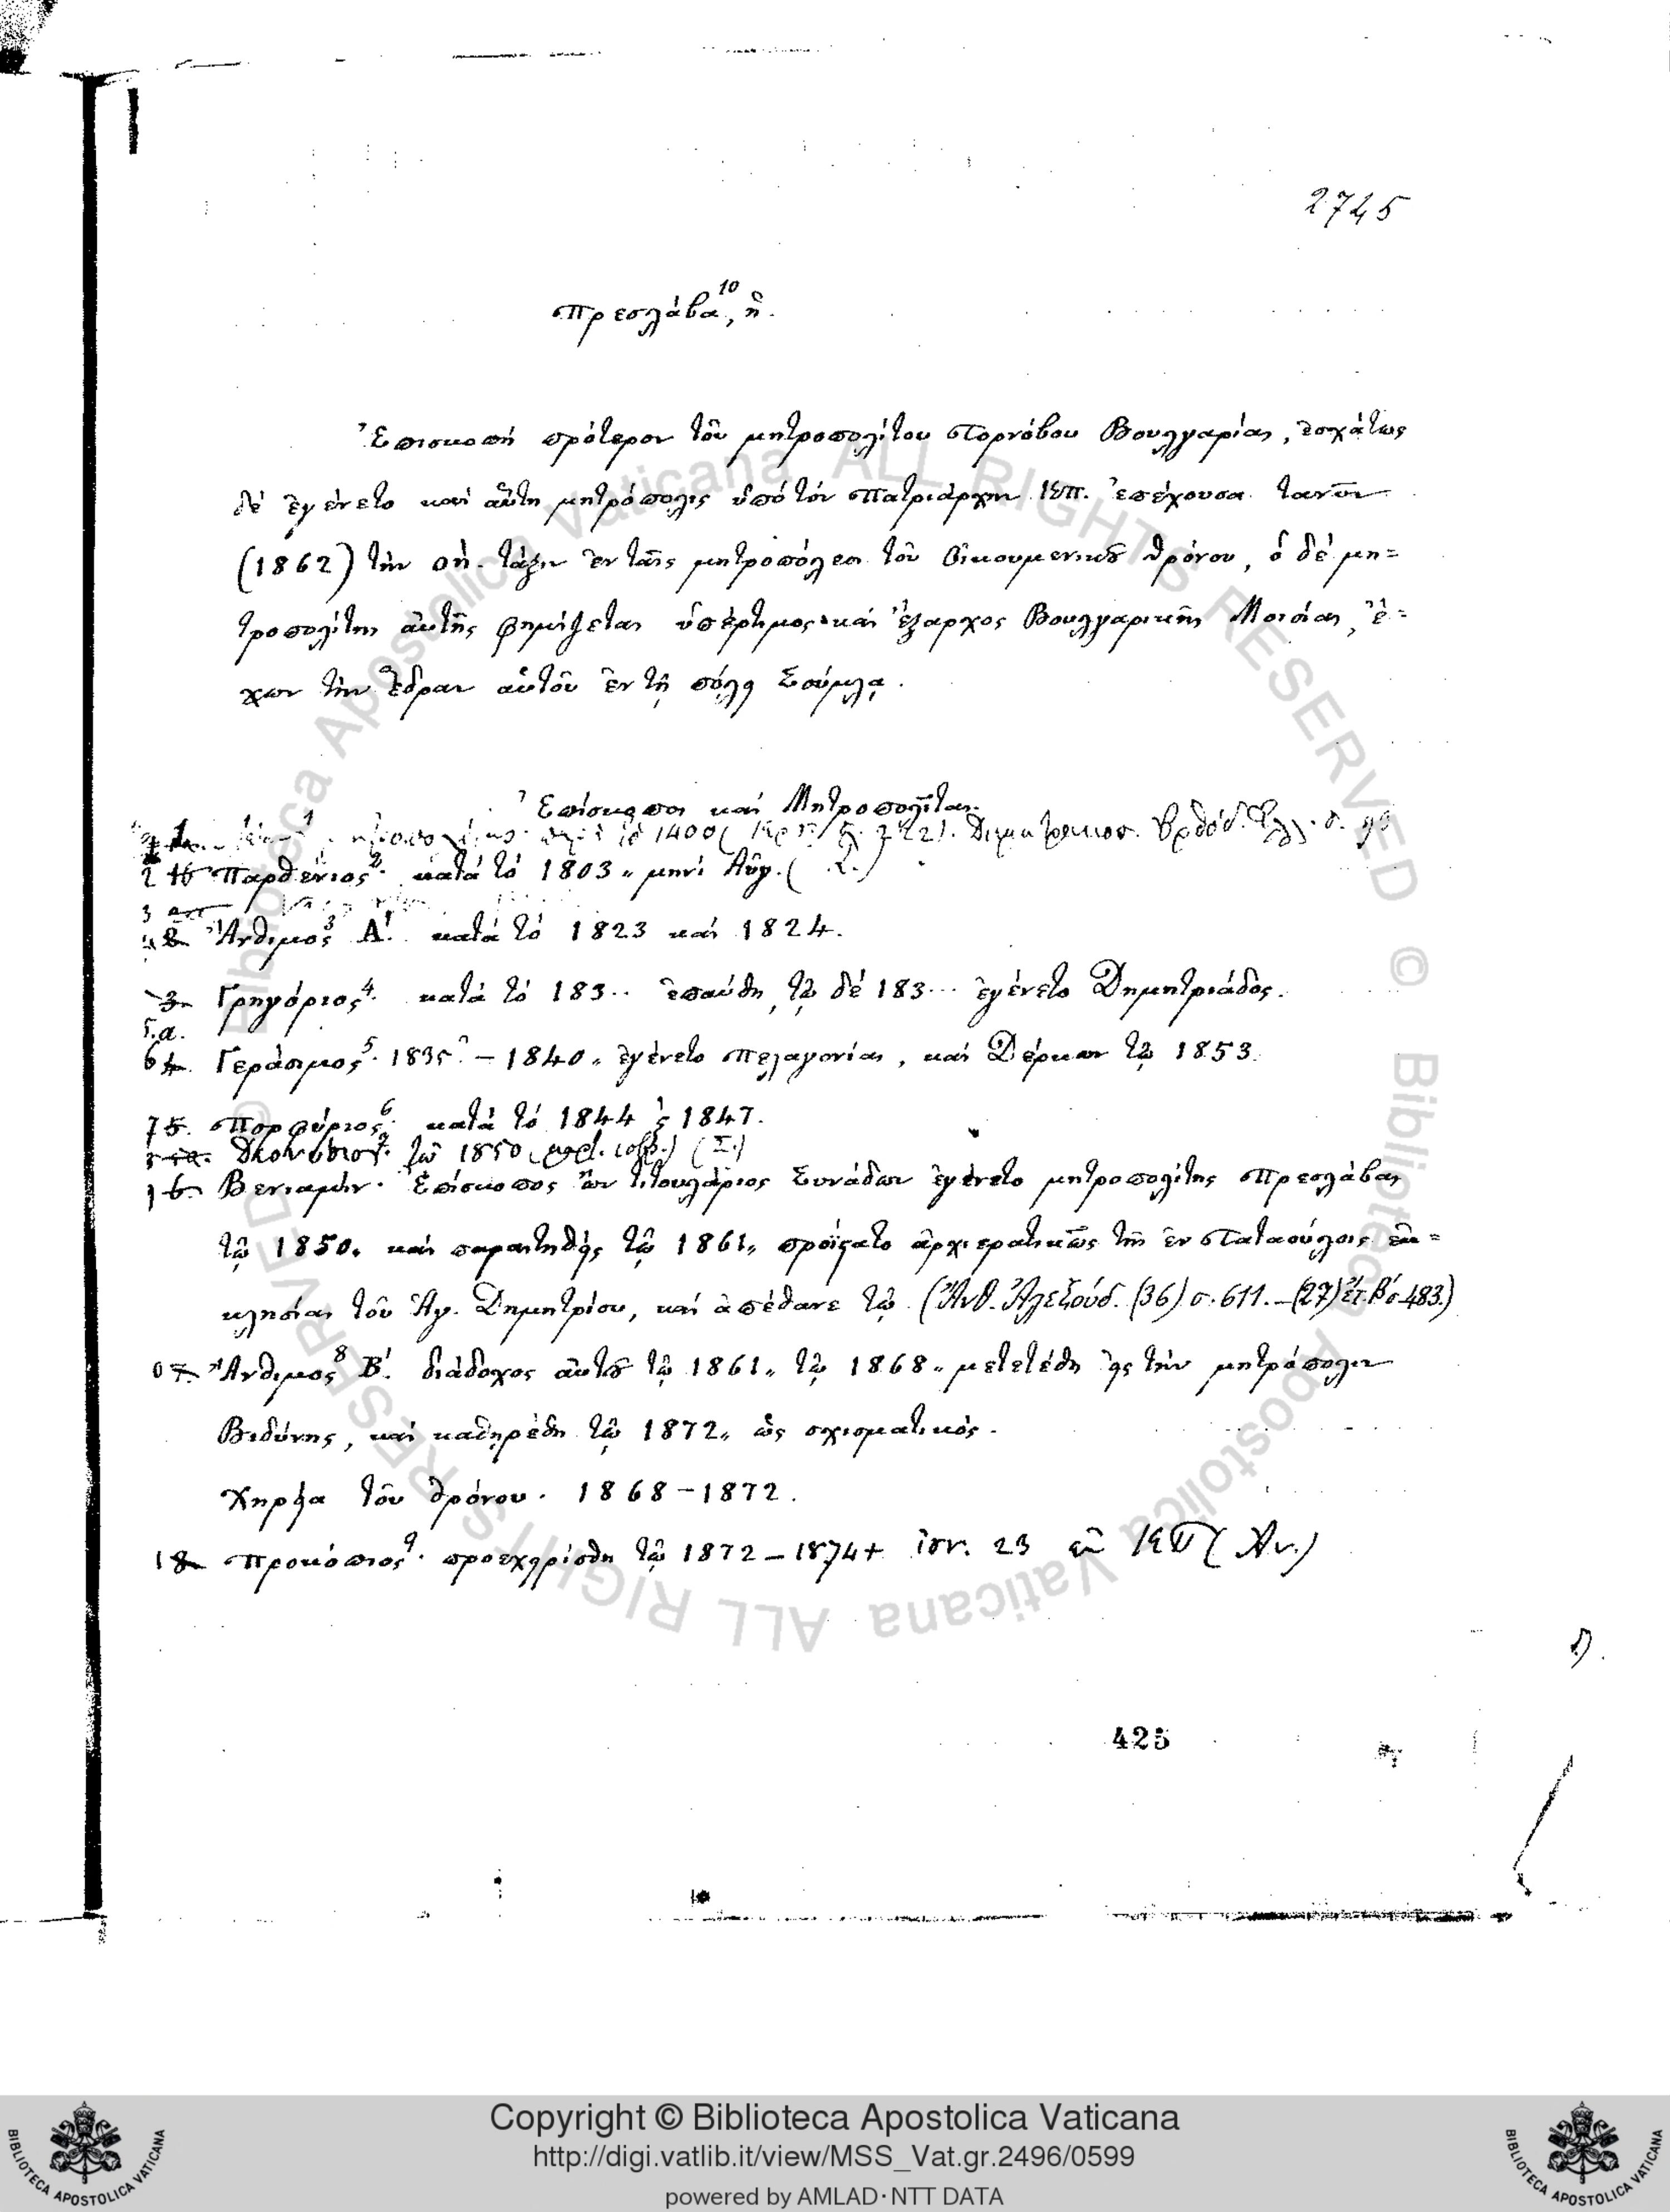 2745
Πρεσλάβα¹⁰, ἡ.
Ἐπισκοπή πρότερον τοῦ μητροπολίτου Τορνόβου Βουλγαρίας, ἐσχάτως
δέ ἐγένετο καί αὕτη μητρόπολις ὑπό τόν Πατριάρχην ΚΠ. ἐπέχουσα τανῦν
(1862) τήν οή. τάξιν ἐν ταῖς μητροπόλεσι τοῦ Οἰκουμενικοῦ θρόνου, ὁ δέ μη=
τροπολίτης αὐτῆς φημίζεται ὑπέρτιμος καί ἔξαρχος Βουλγαρικῆς Μοισίας, ἔ=
χων τήν ἕδραν αὐτοῦ ἐν τῇ πόλει Σούμλᾳ.
Ἐπίσκοποι καί Μητροπολῖται.
1400 Ὀρθόδ. Ἑλλ. σ.
2 Παρθένιος². κατά τό 1803. μηνί Αὔγ. (Σ.)
3
Ἄνθιμος³ Α΄. κατά τό 1823 καί 1824.
3. Γρηγόριος⁴. κατά τό 183.. ἐπαύθη, τῷ δέ 183... ἐγένετο Δημητριάδος.
5.α.
6 4. Γεράσιμος⁵. 1835? – 1840. ἐγένετο Πελαγονίας, καί Δέρκων τῷ 1853.
7 5. Πορφύριος⁶. κατά τό 1844 ϛ 1847.
Διονύσιος⁷. τῷ 1850 (Σ.)
6. Βενιαμήν. Ἐπίσκοπος ὤν τιτουλάριος Συνάδων ἐγένετο μητροπολίτης Πρεσλάβας
τῷ 1850. καί παραιτηθείς τῷ 1861. προΐστατο ἀρχιερατικῶς τῆς ἐν Ταταούλοις ἐκ=
κλησίας τοῦ Ἁγ. Δημητρίου, καί ἀπέθανε τῷ (Ἀνθ. Ἀλεξούδ. (36) σ. 611. – (27) ἔτ. Β΄ σ. 483.)
7. Ἄνθιμος⁸ Β΄. διάδοχος αὐτοῦ τῷ 1861. τῷ 1868. μετετέθη εἰς τήν μητρόπολιν
Βιδύνης, καί καθῃρέθη τῷ 1872. ὡς σχισματικός.
Χηρεία τοῦ θρόνου. 1868–1872.
8. Προκόπιος⁹. προεχειρίσθη τῷ 1872 – 1874+ ἰαν. 23 ἐν ΚΠ (Ἀν.)
425
Copyright © Biblioteca Apostolica Vaticana
http://digi.vatlib.it/view/MSS_Vat.gr.2496/0599
powered by AMLAD·NTT DATA
BIBLIOTECA APOSTOLICA VATICANA
BIBLIOTECA APOSTOLICA VATICANA
© Biblioteca Apostolica Vaticana ALL RIGHTS RESERVED
© Biblioteca Apostolica Vaticana ALL RIGHTS RESERVED